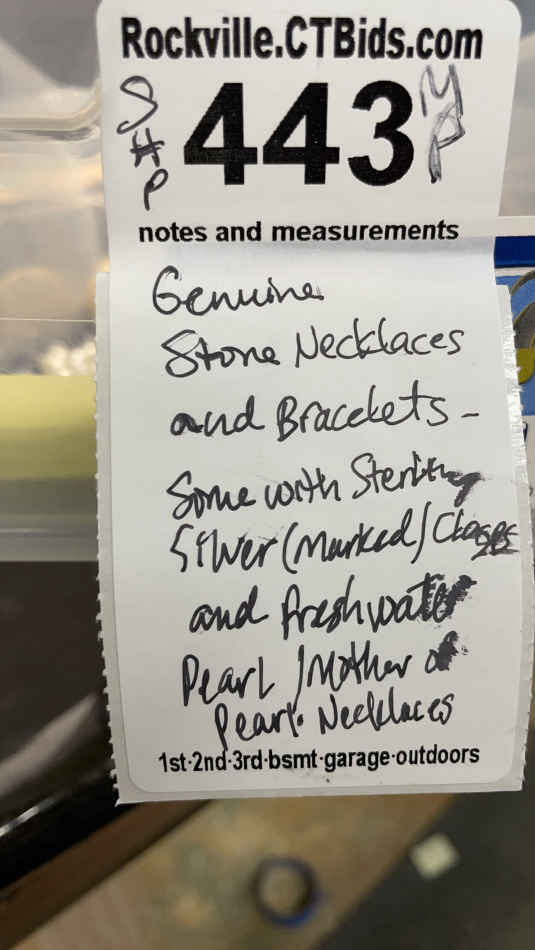 Rockville.CTBids.com
SHP 443 MP
notes and measurements
Genuine
Stone Necklaces
and Bracelets -
Some with Sterling
Silver (Marked) Clasps
and Freshwater
Pearl / Mother of
Pearl. Necklaces
1st·2nd·3rd·bsmt·garage·outdoors